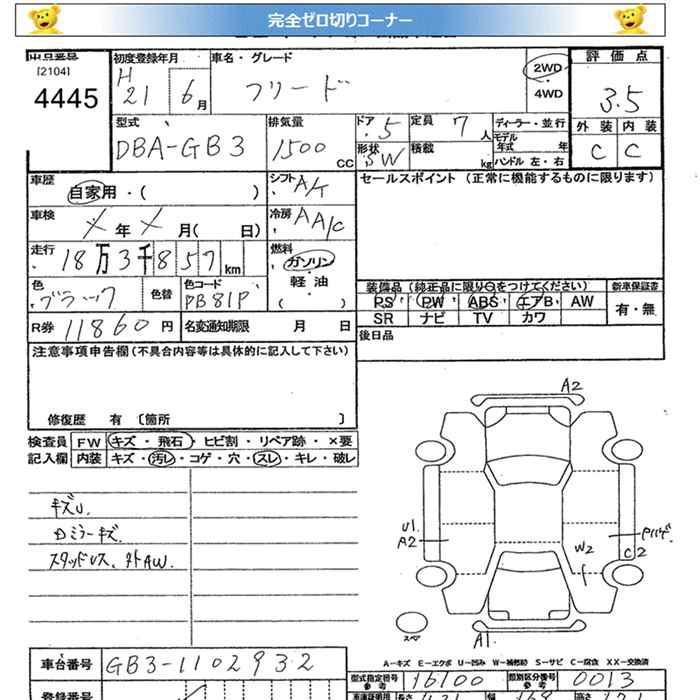 完全ゼロ切りコーナー
出品番号
[2104]
4445
初度登録年月
H
21 6月
車名・グレード
フリード
2WD
・
4WD
評価点
3.5
外装 内装
C C
型式
DBA-GB3
排気量
1500 CC
ドア
5
形状
SW
定員
7人
積載
kg
ディーラー・並行
モデル年式 年
ハンドル 左・右
車歴
自家用・( )
シフト
A/T
セールスポイント (正常に機能するものに限ります)
車検
年 月( 日)
冷房
AA/C
走行
18万3千857km
燃料
ガソリン
・
軽・油
( )
色
ブラック
色替
色コード
PB81P
装備品 (純正品に限り○をつけてください)
新車保証書
PS PW ABS エアB AW
有・無
SR ナビ TV カワ
R券 11860円
名変通知期限 月 日
後日品
注意事項申告欄(不具合内容等は具体的に記入して下さい)
修復歴 有 〔箇所 〕
検査員 FW キズ・飛石・ヒビ割・リペア跡・×要
記入欄 内装 キズ・汚レ・コゲ・穴・スレ・キレ・破レ
キズU.
ロミラーキズ.
スタッドレス、外AW.
A2
U1
A2
W2
Pハゲ
C2
スペア
A1
車台番号 GB3-1102932
A-キズ E-エクボ U-凹み W-補修跡 S-サビ C-腐食 XX-交換済
型式指定番号
参考
16100
類別区分番号
参考
0013
登録番号
車庫証明用 長さ 幅 高さ